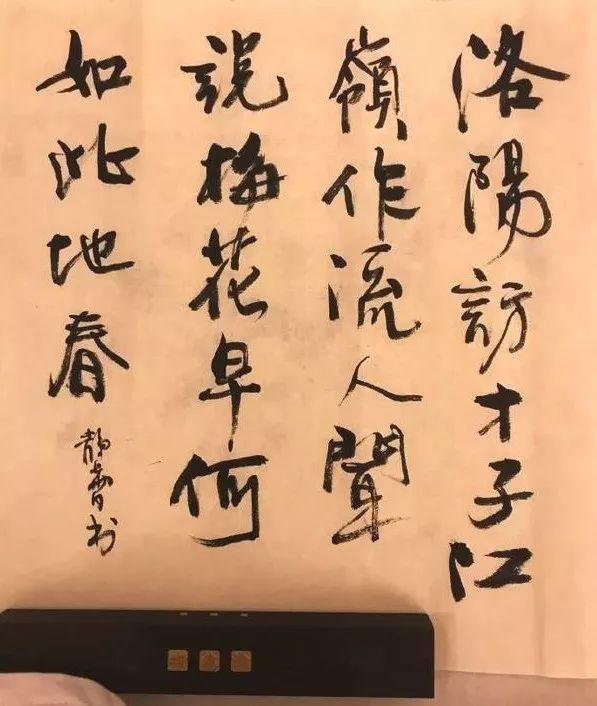 洛陽訪才子江
嶺作流人聞
説梅花早何
如此地春
靜书